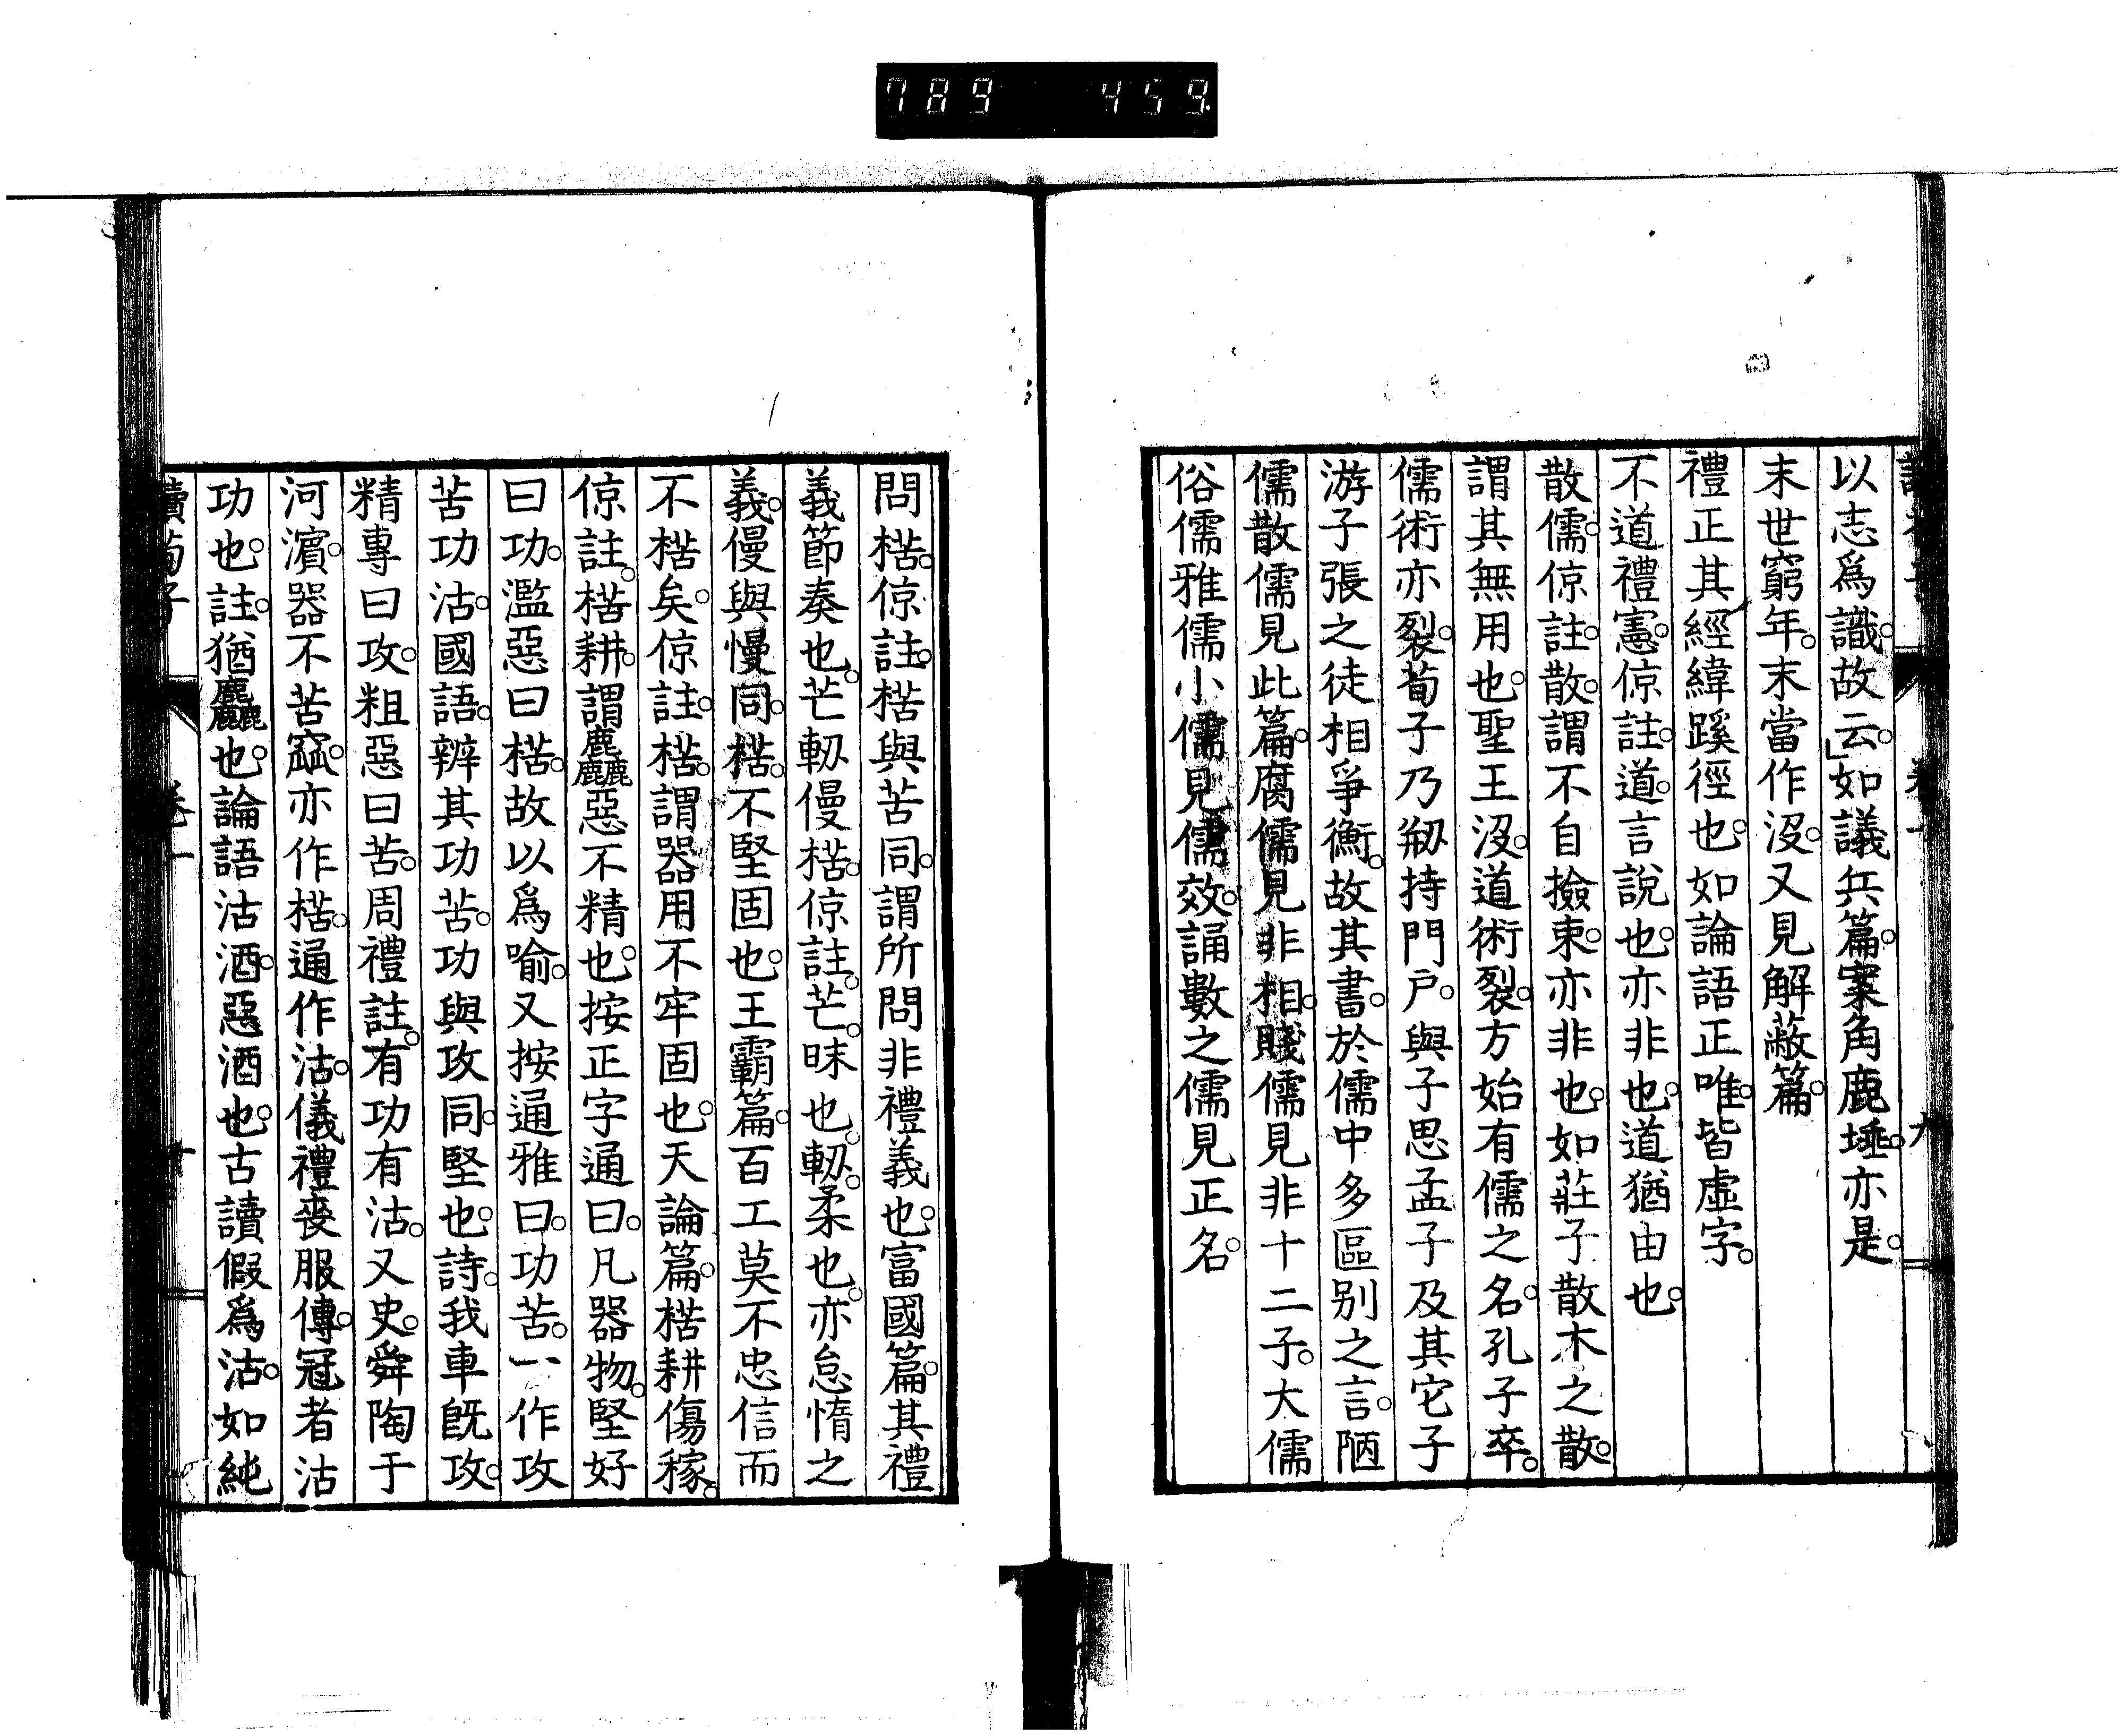 789 459
以志爲識。故云。」如議兵篇。案角鹿埵。亦是。
末世窮年。末當作沒。又見解蔽篇。
禮正其經緯蹊徑也。如論語正唯。皆虛字。
不道禮憲。倞註。道。言說也。亦非也。道猶由也。
散儒。倞註。散。謂不自撿束。亦非也。如莊子散木之散。
謂其無用也。聖王沒。道術裂。方始有儒之名。孔子卒。
儒術亦裂。荀子乃剏持門戶。與子思孟子及其它子
游子張之徒相爭衡。故其書。於儒中多區別之言。陋
儒散儒見此篇。腐儒見非相。賤儒見非十二子。大儒
俗儒雅儒小儒見儒效。誦數之儒見正名。
問楛。倞註。楛與苦同。謂所問非禮義也。富國篇。其禮
義節奏也。芒軔僈楛。倞註。芒。昧也。軔。柔也。亦怠惰之
義。僈與慢同。楛。不堅固也。王霸篇。百工莫不忠信而
不楛矣。倞註。楛。謂器用不牢固也。天論篇。楛耕傷稼。
倞註。楛耕。謂麤惡不精也。按正字通曰。凡器物。堅好
曰功。濫惡曰楛。故以爲喻。又按通雅曰。功苦。一作攻
苦功沽。國語。辨其功苦。功與攻同。堅也。詩。我車旣攻。
精專曰攻。粗惡曰苦。周禮註。有功有沽。又史。舜陶于
河濱。器不苦窳。亦作楛。通作沽。儀禮喪服傳。冠者沽
功也。註。猶麤也。論語沽酒。惡酒也。古讀假爲沽。如純
讀荀子 卷一 十